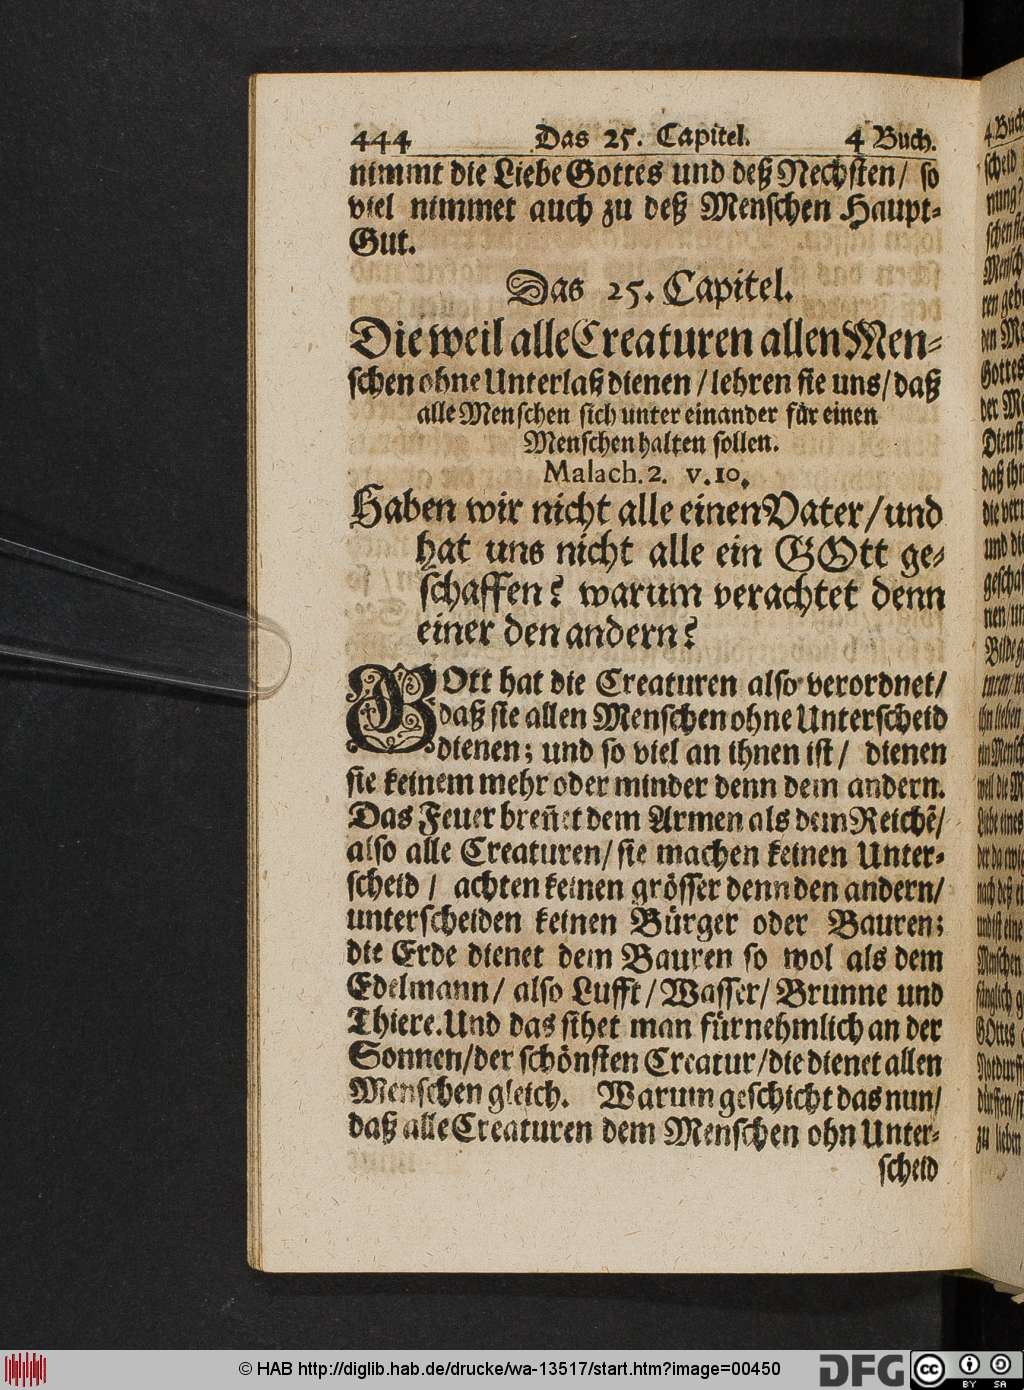 444 Das 25. Capitel. 4 Buch.
nimmt die Liebe Gottes und deß Nechsten/ so
viel nimmet auch zu deß Menschen Haupt-
Gut.
Das 25. Capitel.
Die weil alle Creaturen allen Men-
schen ohne Unterlaß dienen/lehren sie uns/daß
alle Menschen sich unter einander für einen
Menschen halten sollen.
Malach. 2. v. 10.
Haben wir nicht alle einen Vater/und
hat uns nicht alle ein GOtt ge-
schaffen? warum verachtet denn
einer den andern?
GOtt hat die Creaturen also verordnet/
daß sie allen Menschen ohne Unterscheid
dienen; und so viel an ihnen ist/ dienen
sie keinem mehr oder minder denn dem andern.
Das Feuer breñet dem Armen als dem Reichẽ/
also alle Creaturen/ sie machen keinen Unter-
scheid/ achten keinen grösser denn den andern/
unterscheiden keinen Bürger oder Bauren;
die Erde dienet dem Bauren so wol als dem
Edelmann/ also Lufft/ Wasser/ Brunne und
Thiere. Und das sihet man fürnehmlich an der
Sonnen/der schönsten Creatur/die dienet allen
Menschen gleich. Warum geschicht das nun/
daß alle Creaturen dem Menschen ohn Unter-
scheid
4. Buch
scheid
nung?
Mensch
den Me
Gottes
der Me
Dienst
daß ihr
und die
Menschen
GOttes
zu lieben
© HAB http://diglib.hab.de/drucke/wa-13517/start.htm?image=00450
DFG
cc BY SA